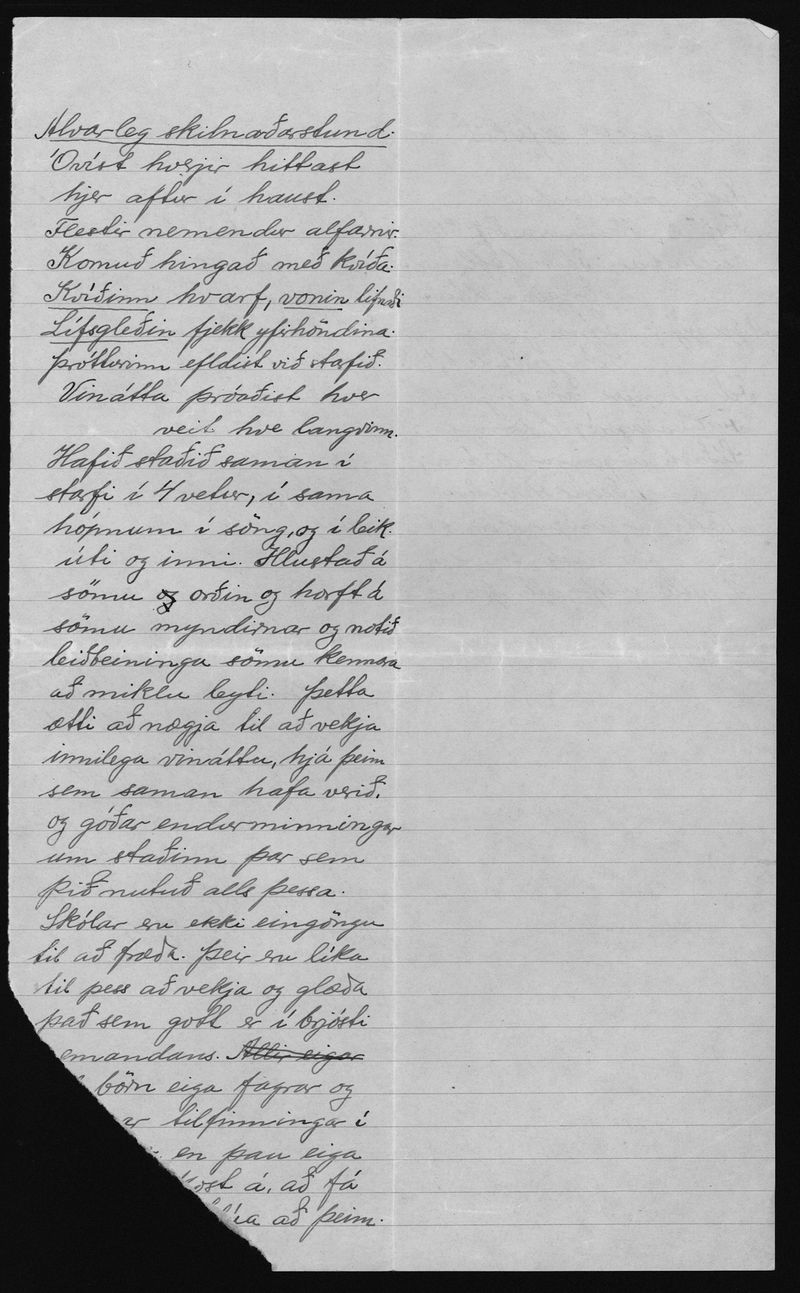 Alvarleg skilnaðarstund.
Óvíst hverjir hittast
hjer aftur í haust.
Flestir nemendur alfarnir.
Komuð hingað með kvíða.
Kvíðinn hvarf, vonin lifnaði
Lífsgleðin fjekk yfirhöndina.
þrótturinn efldist við starfið.
Vinátta þróaðist hver
veit hve langvinn.
Hafið staðið saman í
starfi í 4 vetur, í sama
hópnum í söng, og í leik.
úti og inni. Hlustað á
sömu og orðin og horft á
sömu myndirnar og notið
leiðbeininga sömu kennara
að miklu leyti. Þetta
ætti að nægja til að vekja
innilega vináttu, hjá þeim
sem saman hafa verið.
og góðar endurminningar
um staðinn þar sem
þið nutuð alls þessa.
Skólar eru ekki eingöngu
til að fræða. Þeir eru líka
til þess að vekja og glæða
það sem gott er í brjósti
emandans. Allir eigar
börn eiga fagrar og
ar tilfinningar í
en þau eiga
kost á, að fá
að þeim.